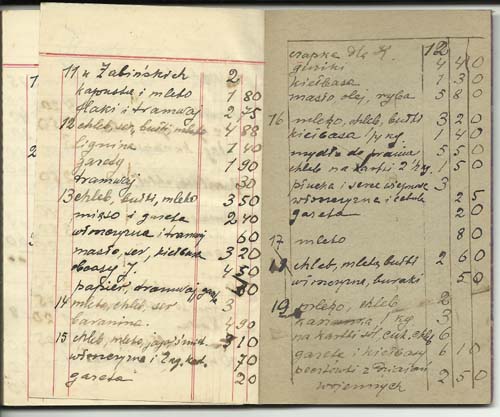 11 u Żabińskich 2
kapusta i mleko 1 80
flaki i tramwaj 2 75
12 chleb, ser, bułki, mleko 4 88
lignina 1 40
gazety 1 90
tramwaj 30
13 chleb, bułki, mleko 3 50
mięso i gazeta 2 40
włoszczyzna i tramwaj 60
masło, ser, kiełbasa 3 20
obcasy J. 4 50
papier, tramwaj 80
14 mleko, chleb, ser 3
baranina 4 90
15 chleb, mleko, 3 10
włoszczyzna i 2 kg 70
gazeta 20
czapka dla 12
guziki 4 40
kiełbasa 1 30
masło olej, ryba 5 80
16 mleko, chleb, bułki 3 20
kiełbasa 1/4 kg 1 40
mydło do prania 5 50
chleb na kartki 2 kg 1 50
3
włoszczyzna i 25
gazeta 20
17 mleko 80
18 chleb, mleko, bułki 2 60
włoszczyzna, buraki 50
19 mleko, chleb 2
1 kg 3
na kartki 6
gazeta i kiełbasy 6 10
pocztówki z
wojennych 2 50